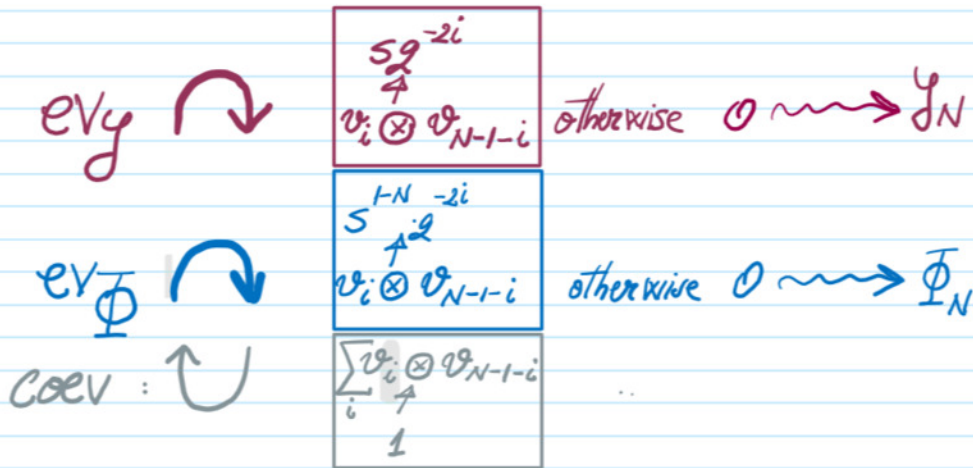 sq^{-2i}
ev_y ↷ v_i ⊗ v_{N-1-i} otherwise 0 ⇝ y_N
s^{1-N} · q^{-2i}
ev_Φ ↷ v_i ⊗ v_{N-1-i} otherwise 0 ⇝ Φ_N
coev : Σ_i v_i ⊗ v_{N-1-i} ..
1